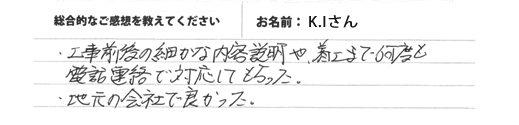 総合的なご感想を教えてください　お名前： K.Iさん
・工事前後の細かな内容説明や、着工まで何度も
電話連絡で対応してもらった。
・地元の会社で良かった。